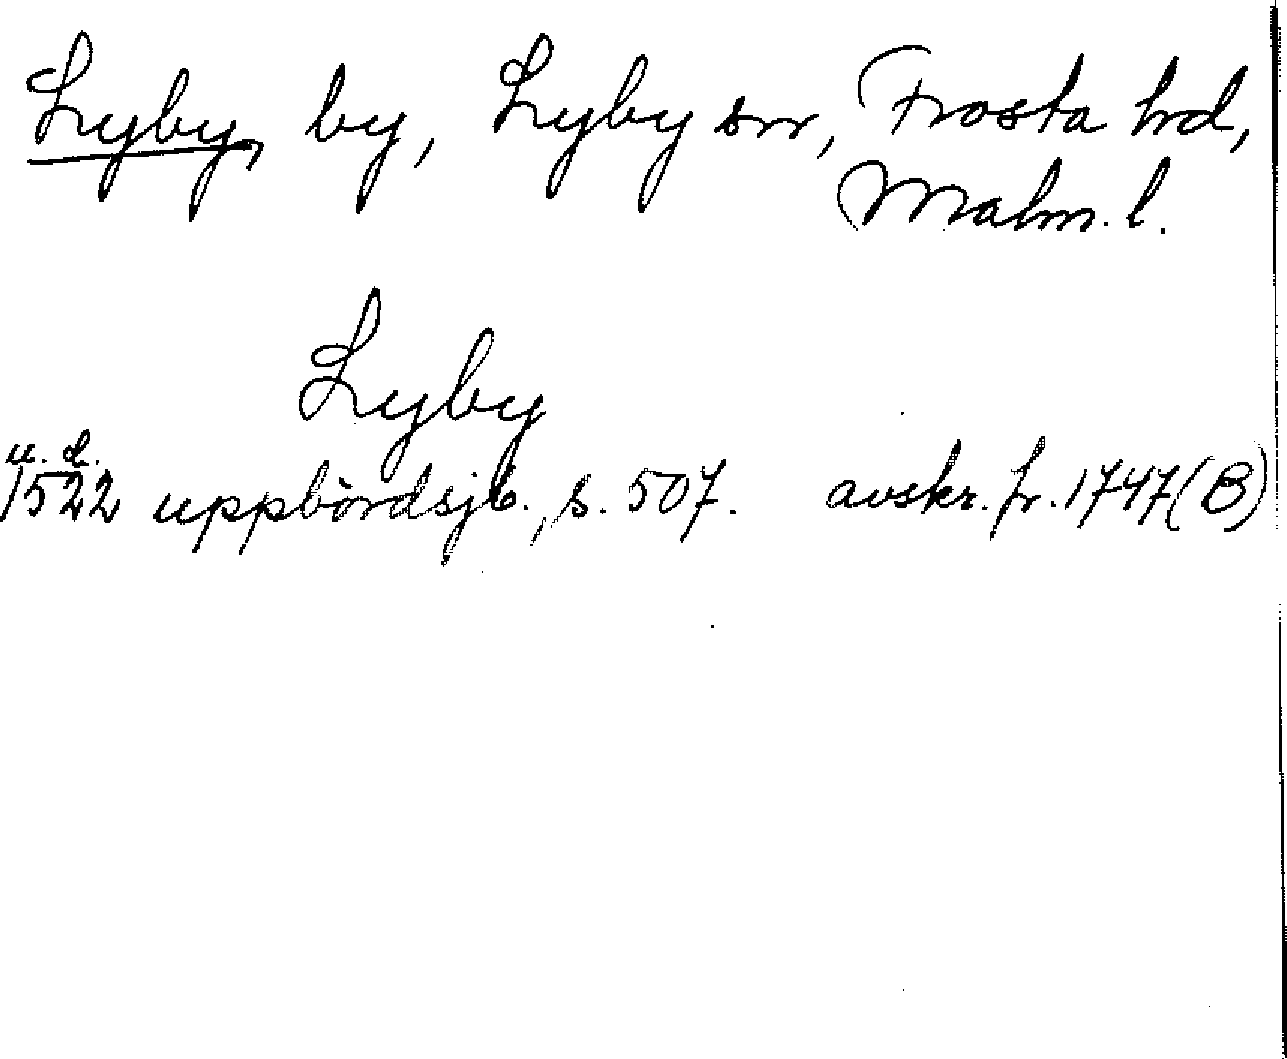 Lyby, by, Lyby sn, Frosta hd,
Malm. l.
Lyby
u. d.
1522 uppbördsjb., s. 507. avskr. fr. 1747 (B)